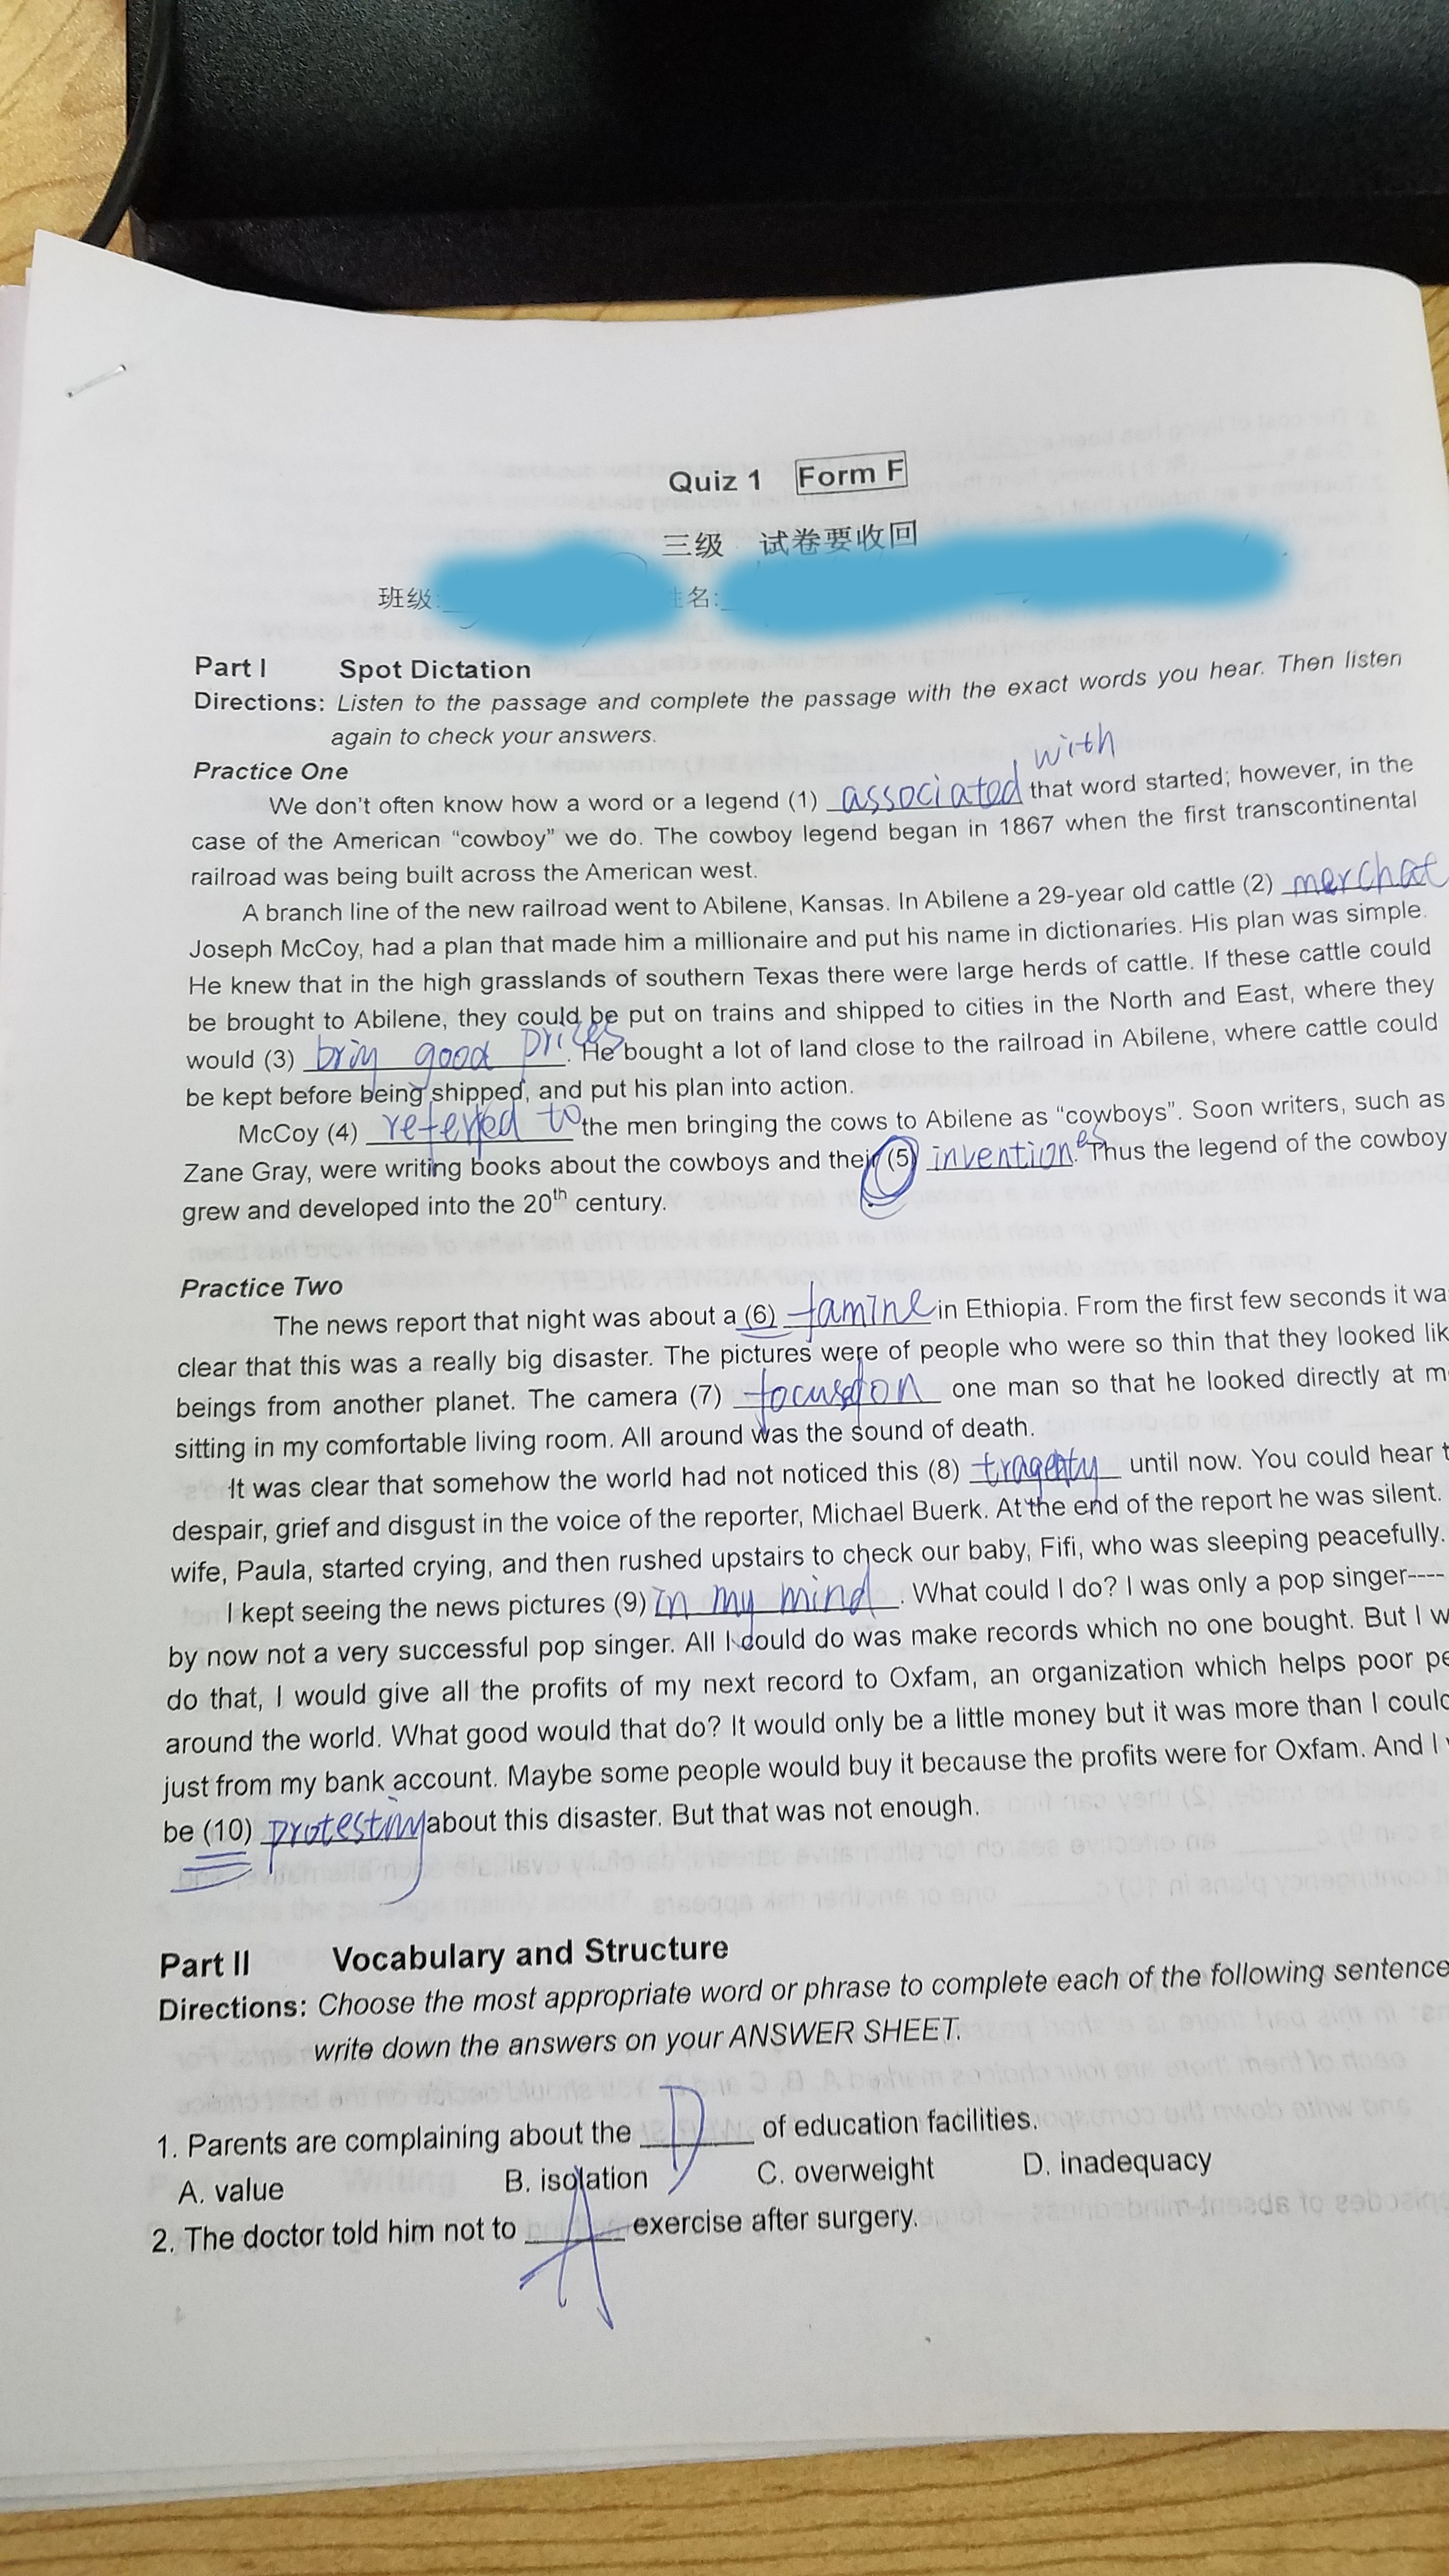 Quiz 1 Form F
三级 试卷要收回
班级: 姓名:
Part I Spot Dictation
Directions: Listen to the passage and complete the passage with the exact words you hear. Then listen
again to check your answers.
Practice One
with
We don't often know how a word or a legend (1) associated that word started; however, in the
case of the American “cowboy” we do. The cowboy legend began in 1867 when the first transcontinental
railroad was being built across the American west.
A branch line of the new railroad went to Abilene, Kansas. In Abilene a 29-year old cattle (2) merchat
Joseph McCoy, had a plan that made him a millionaire and put his name in dictionaries. His plan was simple.
He knew that in the high grasslands of southern Texas there were large herds of cattle. If these cattle could
be brought to Abilene, they could be put on trains and shipped to cities in the North and East, where they
would (3) briy good prices. He bought a lot of land close to the railroad in Abilene, where cattle could
be kept before being shipped, and put his plan into action.
McCoy (4) referred to the men bringing the cows to Abilene as “cowboys”. Soon writers, such as
Zane Gray, were writing books about the cowboys and their (5) inventiones. Thus the legend of the cowboy
grew and developed into the 20th century.
Practice Two
The news report that night was about a (6) famine in Ethiopia. From the first few seconds it wa
clear that this was a really big disaster. The pictures were of people who were so thin that they looked lik
beings from another planet. The camera (7) focused on one man so that he looked directly at m
sitting in my comfortable living room. All around was the sound of death.
It was clear that somehow the world had not noticed this (8) until now. You could hear t
despair, grief and disgust in the voice of the reporter, Michael Buerk. At the end of the report he was silent.
wife, Paula, started crying, and then rushed upstairs to check our baby, Fifi, who was sleeping peacefully.
I kept seeing the news pictures (9) in my mind. What could I do? I was only a pop singer----
by now not a very successful pop singer. All I could do was make records which no one bought. But I w
do that, I would give all the profits of my next record to Oxfam, an organization which helps poor pe
around the world. What good would that do? It would only be a little money but it was more than I could
just from my bank account. Maybe some people would buy it because the profits were for Oxfam. And I
be (10) protesting about this disaster. But that was not enough.
Part II Vocabulary and Structure
Directions: Choose the most appropriate word or phrase to complete each of the following sentence
write down the answers on your ANSWER SHEET.
1. Parents are complaining about the D of education facilities.
A. value B. isolation C. overweight D. inadequacy
2. The doctor told him not to A exercise after surgery.